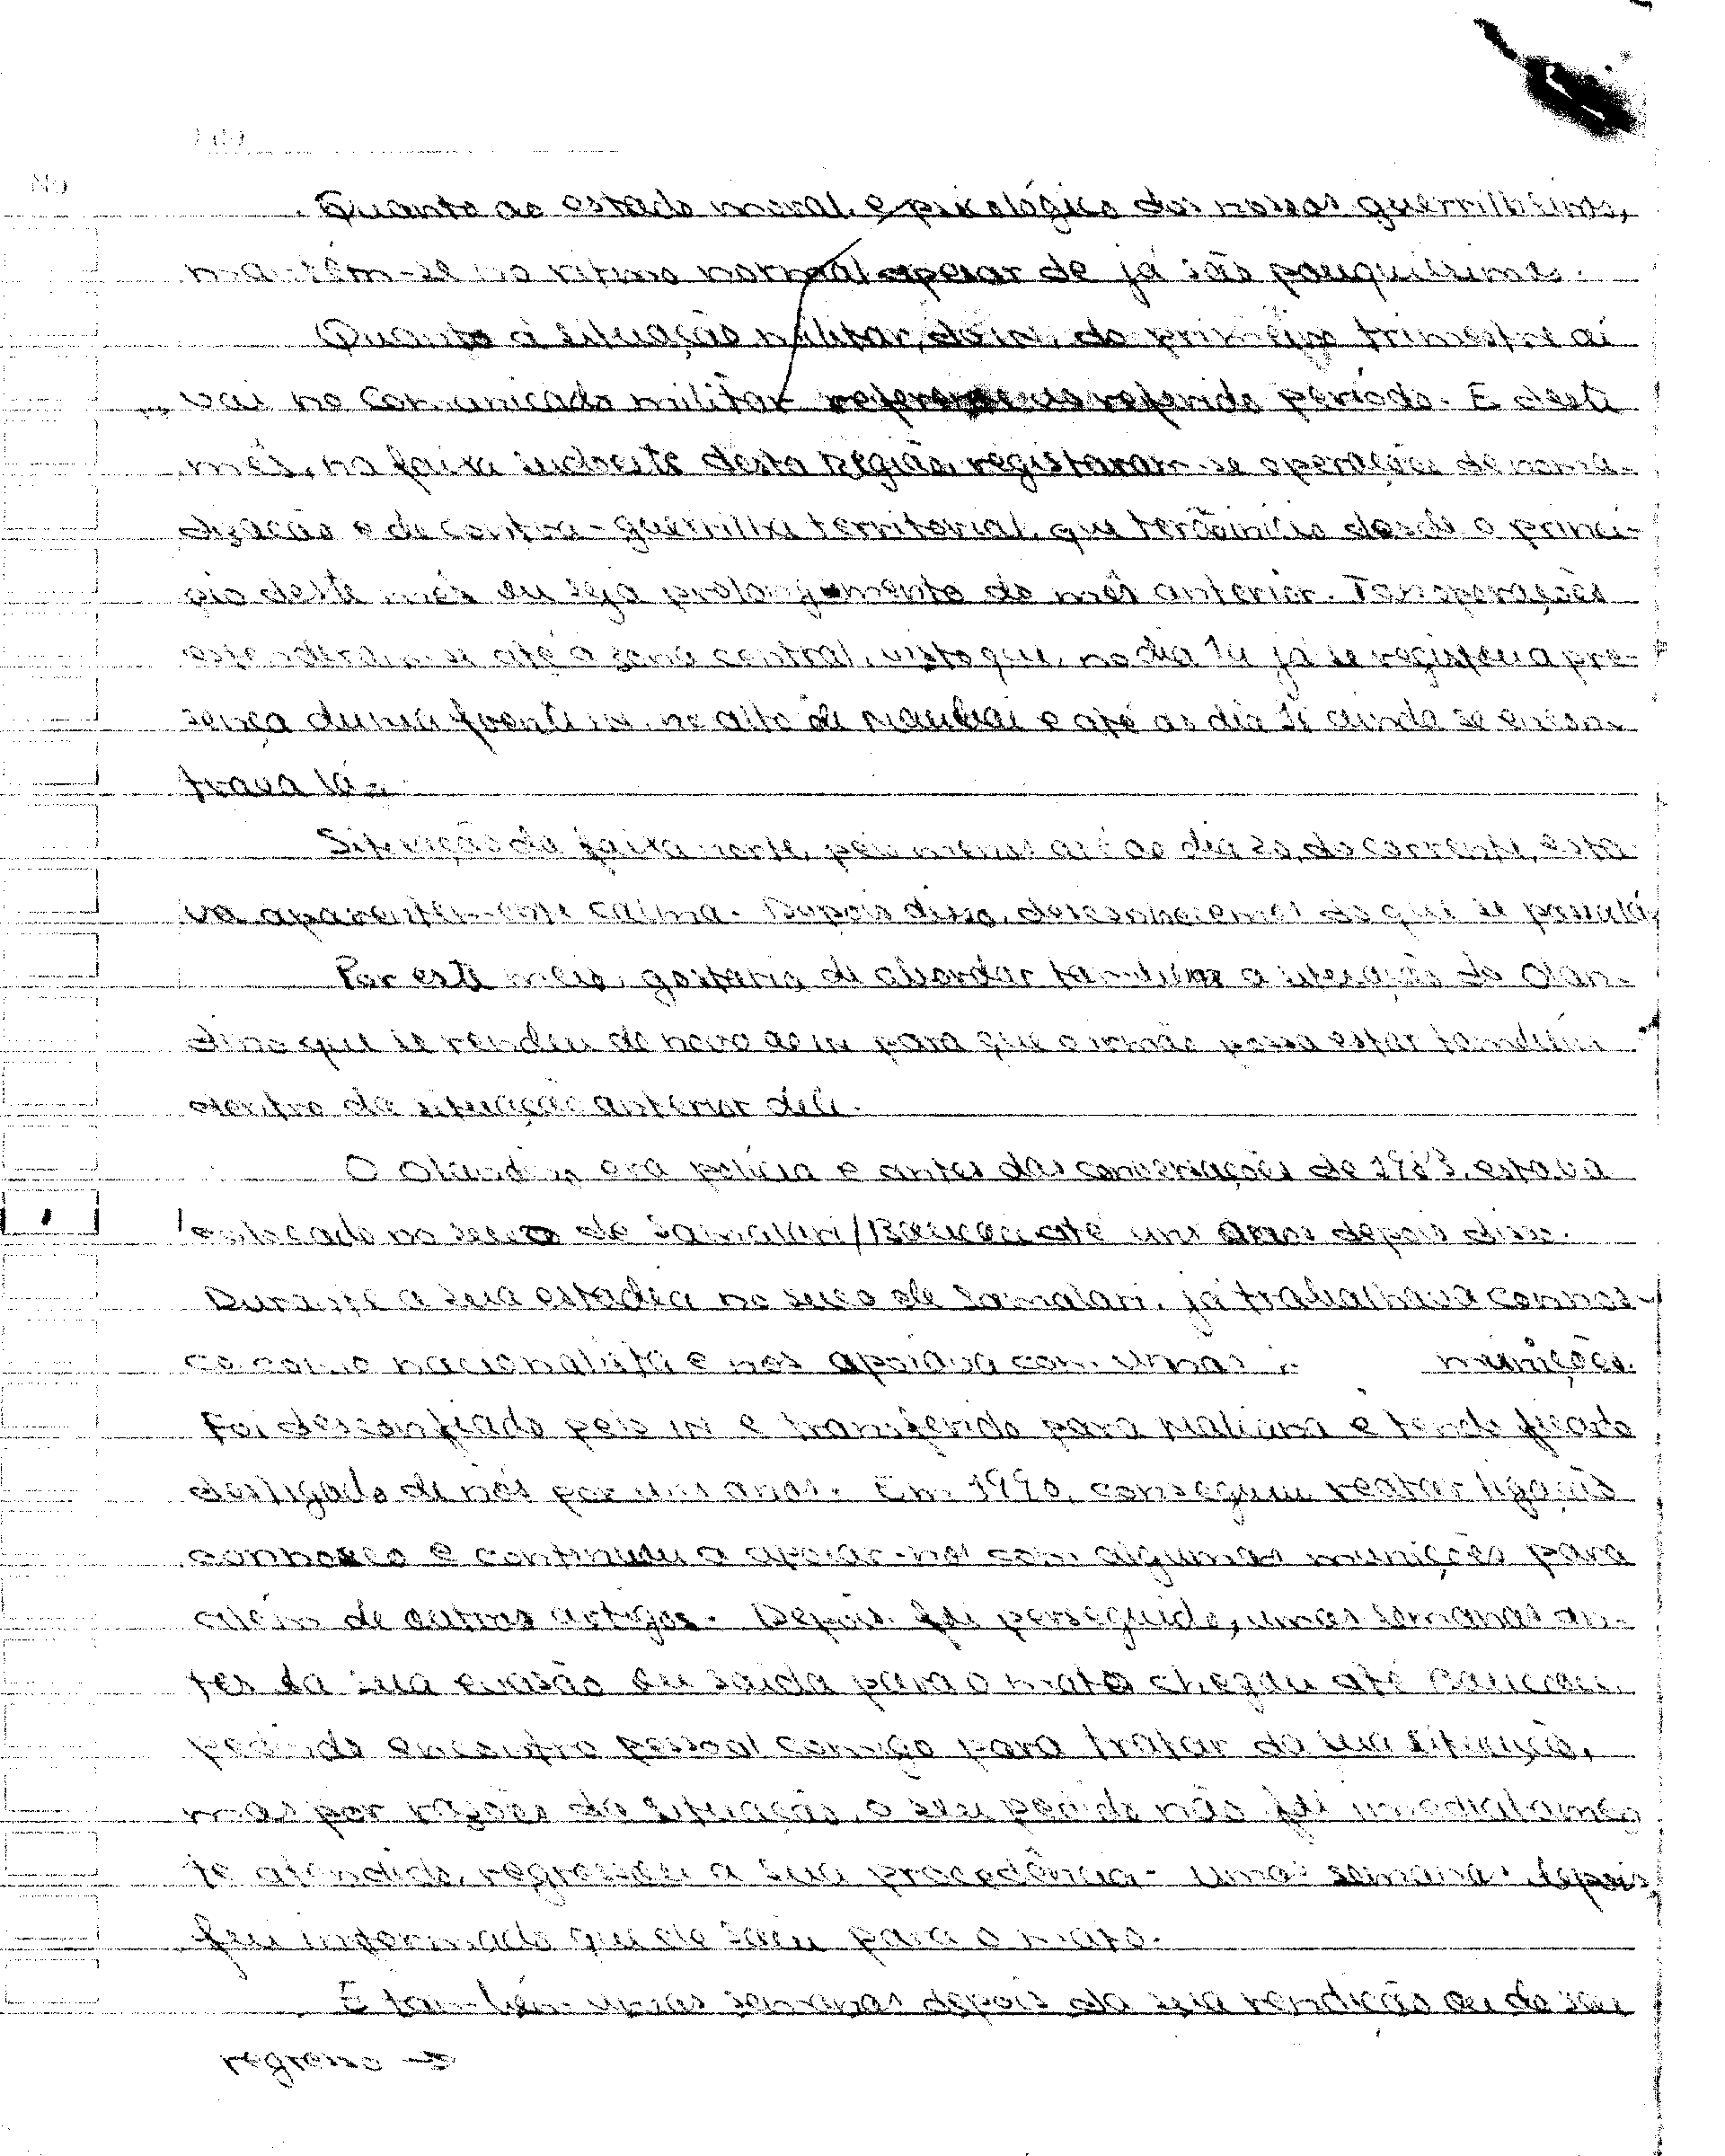 Quanto ao estado moral e psicológico dos nossos guerrilheiros,
mantém-se no ritmo normal apesar de já são pouquíssimos.
Quanto à situação militar, do in, do primeiro trimestre aí
vai no comunicado militar referido período. E deste
mês, na faixa sudoeste desta Região, registaram-se operações de noma-
dização e de contra-guerrilha territorial, que início desde o princí-
pio deste mês ou seja prolongamento do mês anterior. operações
estenderam-se até a zona central, visto que, no dia 14 já se registou a pre-
sença duma no alto de e até ao dia ainda se encon-
trava lá.
Situação da faixa norte, pelo menos até ao dia 20, do corrente, esta-
va aparentemente calma. Depois disso, desconhecemos do que se passa lá,
Por este meio, gostaria de abordar também a situação do Olan-
dino que se rendeu de novo ao in para que o irmão possa estar também
dentro da situação anterior dele.
O Olandino era polícia e antes das conversações de 1983, estava
colocado no suco de Samalari/Baucau até uns anos depois disso.
Durante a sua estadia no suco de Samalari, já trabalhava connos-
co como nacionalista e nos apoiava com umas munições.
Foi desconfiado pelo in e transferido para Maliana e tendo ficado
desligado de nós por uns anos. Em 1990, conseguiu reatar ligações
connosco e continuou a apoiar-nos com algumas munições para
além de outros artigos. Depois foi perseguido, umas semanas an-
tes da sua evasão ou saída para o mato chegou até Baucau,
pedindo encontro pessoal comigo para tratar da sua situação,
mas por razões da situação, o seu pedido não foi imediatamen
te atendido, regressou a sua procedência. Umas semanas depois,
fui informado que ele saiu para o mato.
E também umas semanas depois da sua rendição ou do seu
regresso →